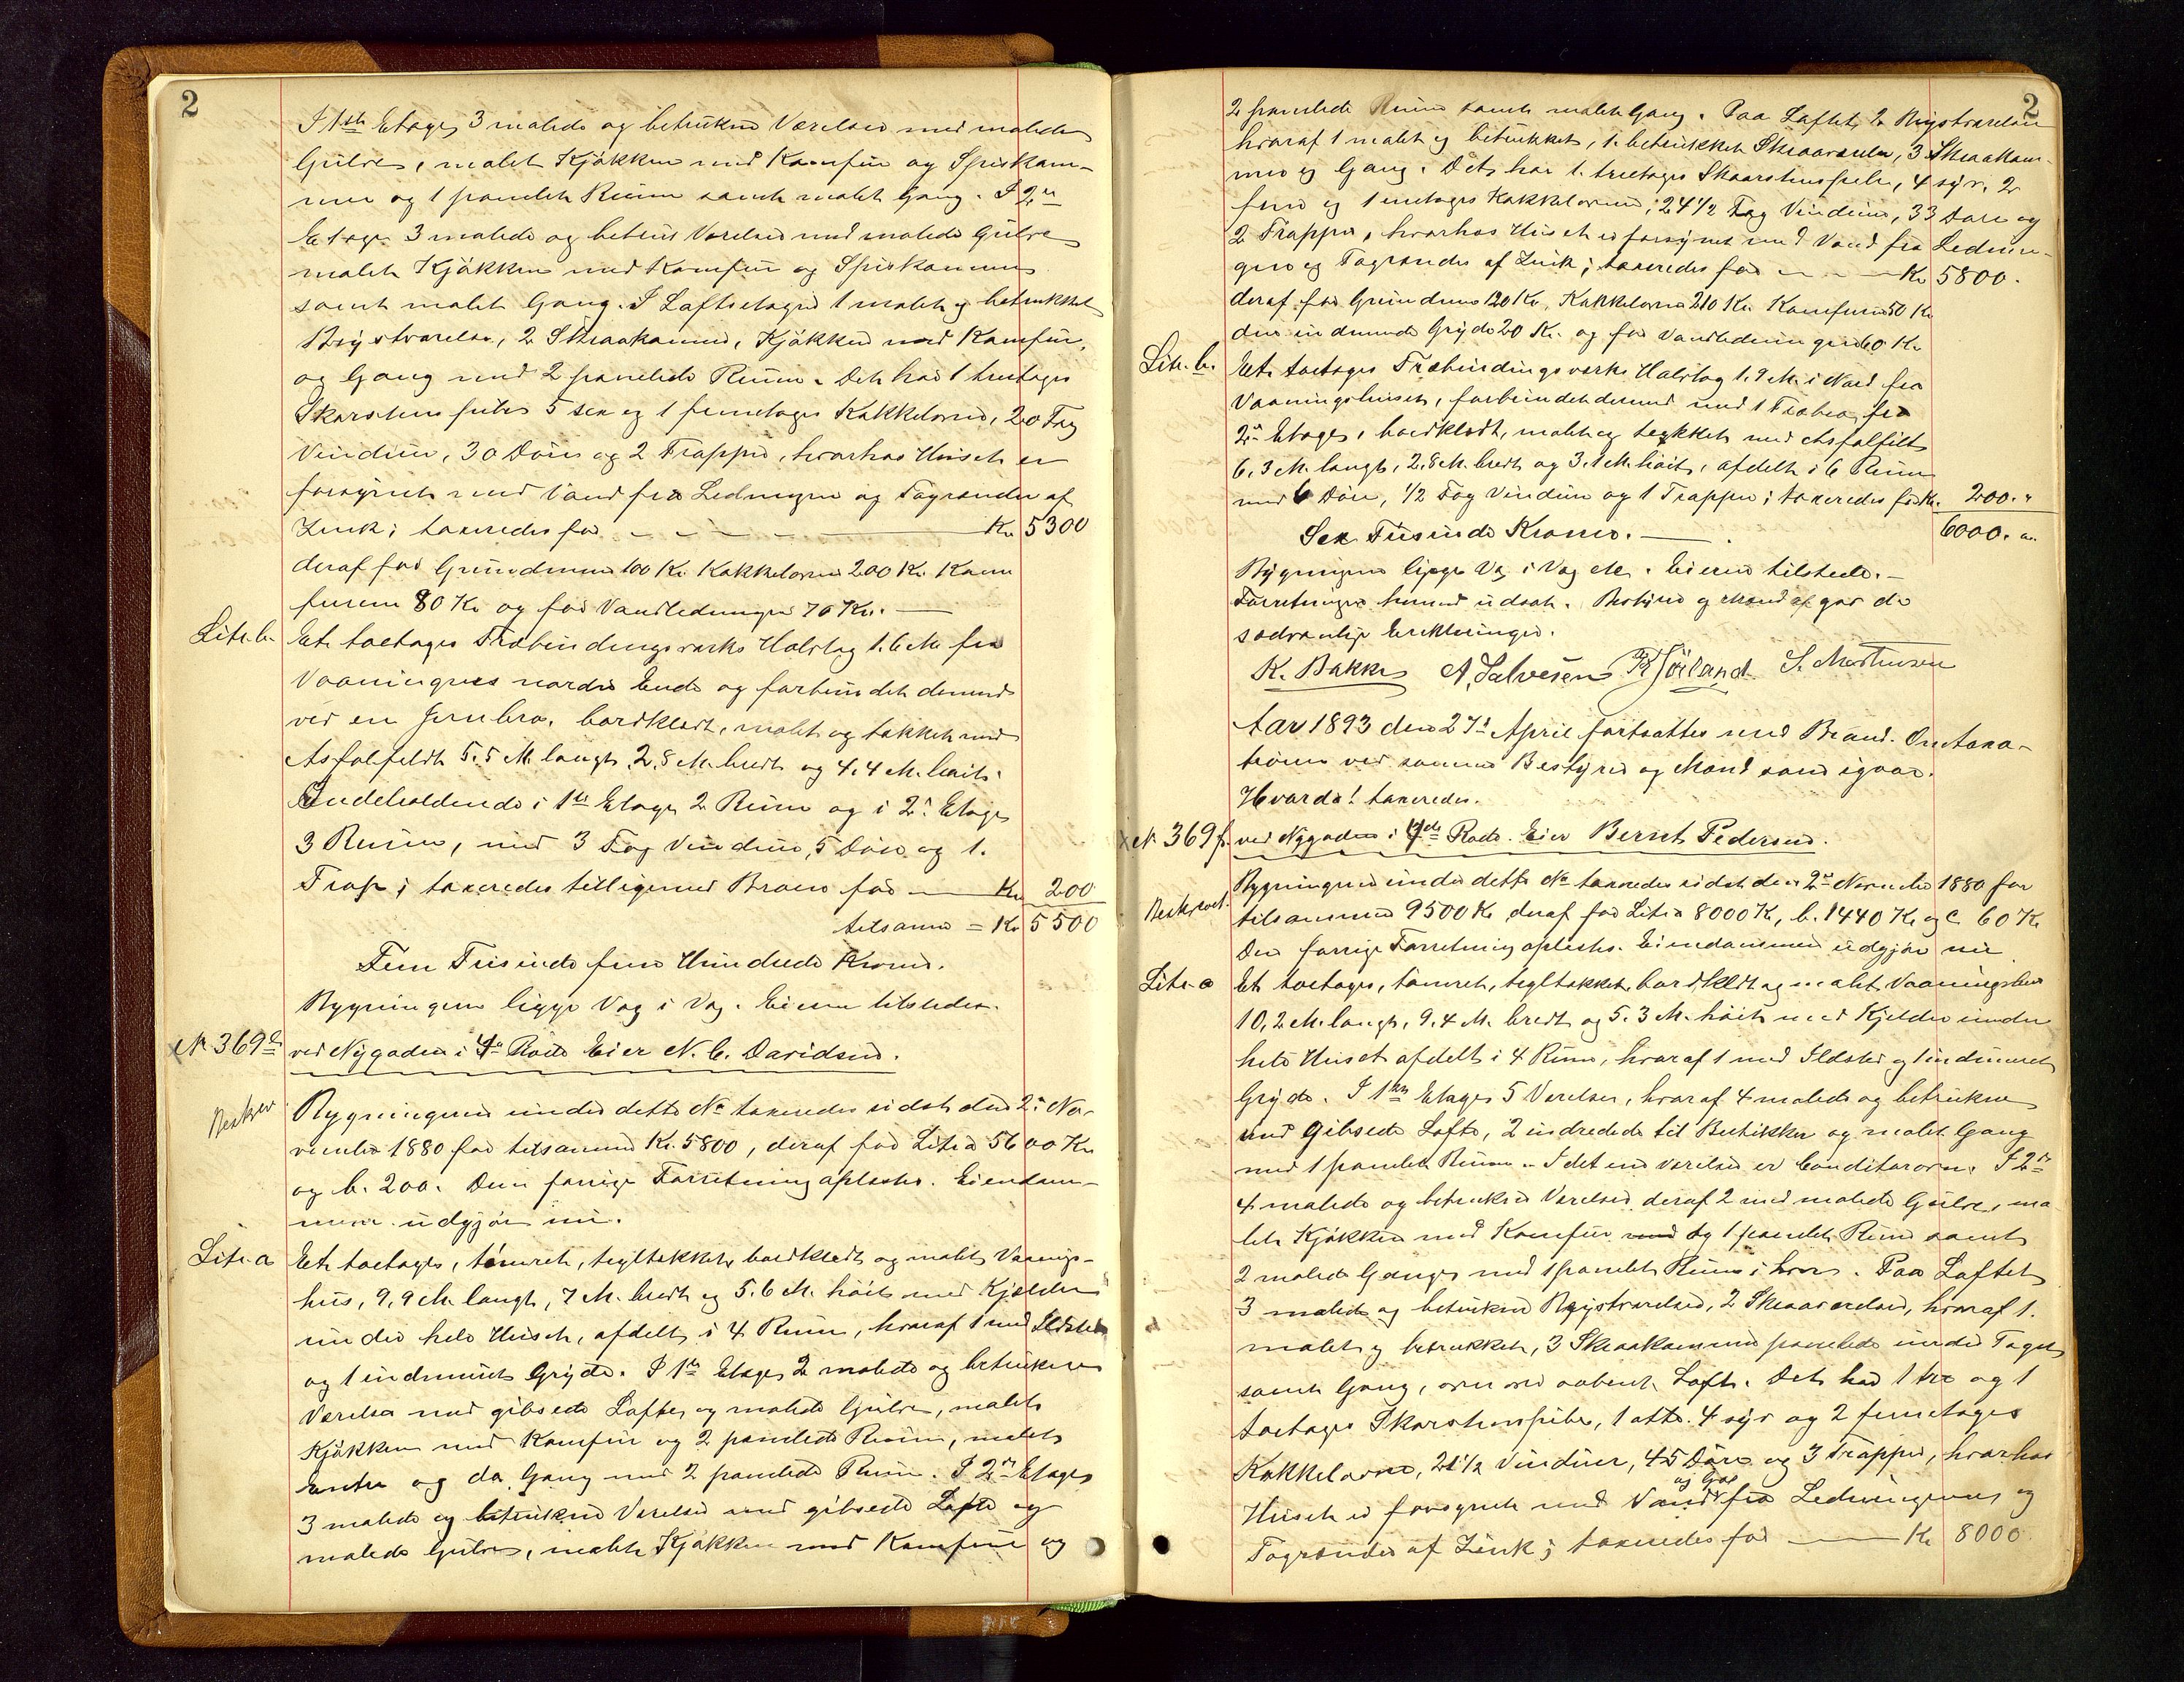 2
I 1ste Etage, 3 malede og betrukne Værelser med malede
Gulve, malet Kjøkken med Komfur og Spiskam-
mer og 1 panelet Rum samt malet Gang. I 2den
Etage 3 malede og betrus Værelser med malede Gulve
malet Kjøkken med Komfur og Spiskammer
samt malet Gang. I Loftsetagen 1 malet og betrukket
Brystværelse, 2 Skraakamre, Kjøkken med Komfur,
og Gang med 2 panelede Rum. Det har 1 treetages
Skorstenspibe 5 sex og 1 femetages Kakkelovne, 20 Fag
Vinduer, 30 Døre og 2 Trapper, hvorhos Huset er
forsynet med Vand fra Ledningen og Tagrender af
Zink; taxeredes for — Kr 5300
deraf for Grundmur 100 Kr Kakkelovne 200 Kr Kom
furene 80 Kr og for Vandledningen 70 Kr. —
Litr. b. Et toetages Træbindingsværks Halvtag 1.6 M. fra
Vaaningens nordre Ende og forbundet dermed
ved en Jernbro, bordklædt, malet og tækket med
Asfalfeldt 5.5 M. langt, 2.8 M. bredt og 4.4 M. høit.
Indeholdende i 1ste Etage 2 Rum og i 2den Etage
3 Rum, med 3 Fag Vinduer, 5 Døre og 1.
Trap; taxeredes tilligemed Broen for — Kr 200
tilsamm = Kr 5500
Fem Tusinde fem Hundrede Kroner.
Bygningen ligge Væg i Væg. Eieren tilstede.
x No 369e ved Nygaden i 4de Rode Eier N. C. Davidsen.
Beskrev Bygningerne under dette No taxeredes sidst den 2den No-
vember 1880 for tilsammen Kr. 5800, deraf for Litr a 5600 Kr
og b. 200. Den forrige Forretning oplæstes. Eiendom-
men udgjør nu.
Litr. a Et toetages, tømret, tegltækket, bordklædt og malet Vaanings-
hus, 9,9 M. langt, 7 M. bredt og 5.6 M. høit med Kjælder
under hele Huset, afdelt i 4 Rum, hvoraf 1 med Ildsted
og 1 indmuret Gryde. I 1ste Etage 2 malede og betrukne
Værelser med gibsede Lofte og malede Gulve, malet
Kjøkken med Komfur og 2 panelede Rum, malet
Entre og do. Gang med 2 panelede Rum. I 2den Etage
3 malede og betrukne Værelser med gibsede Lofte og
malede Gulve, malet Kjøkken med Komfur og
2
2 panelede Rum samt malet Gang. Paa Loftet 2 Brystværelser
hvoraf 1 malet og betrukket, 1 betrukket Skraaværelse, 3 Skraakam-
mre og Gang. Det har 1 treetages Skorstenspibe, 4 syv, 2
fem og 1 enetages Kakkelovne; 24 1/2 Fag Vinduer, 33 Døre og
2 Trapper, hvorhos Huset er forsynet med Vand fra Lednin-
gen og Tagrender af Zink; taxeredes for — Kr 5800.
deraf for Grundmur 120 Kr, Kakkelovne 210 Kr. Komfurene 50 Kr
den indmurede Gryde 20 Kr. og for Vandledningen 60 Kr
Litr. b. Et toetages Træbindingsværks Halvtag 1.9 M. i Nord fra
Vaaningshuset, forbundet dermed med 1 Træbro fra
2den Etage, bordklædt, malet og tækket med Asfalfilt
6.3 M. langt, 2.8 M. bredt og 3.1 M. høit, afdelt i 6 Rum
med 6 Døre, 1/2 Fag Vinduer og 1 Trappe; taxeredes for Kr. 200. "
Sex Tusinde Kroner. — 6000. "
Bygningerne ligge Væg i Væg etc. Eieren tilstede. —
Forretningen hermed udsat. Bestyrer og Mænd afgav de
sædvanlige Erklæringer.
K. Bakke A. Salvesen S. Morthensen
Aar 1893 den 27de April fortsattes med Brand-Omtaxa-
tionen ved samme Bestyrer og Mænd som igaar.
Hvorda! taxeredes.
x No 369f. ved Nygaden i 4de Rode. Eier Bernt Pedersen.
Beskrevet. Bygningerne under dette No taxeredes sidst den 2den November 1880 for
tilsammen 9500 Kr, deraf for Litr a 8000 K, b. 1440 Kr og c 60 Kr
Den forrige Forretning oplæstes. Eiendommen udgjør nu
Litr. a Et toetages, tømret, tegltækket, bordklædt og malet Vaaningshus
10,2 M. langt, 9.4 M. bredt og 5.3 M. høit med Kjelder under
hele Huset afdelt i 4 Rum, hvoraf 1 med Ildsted og 1 indmuret
Gryde. I 1ste Etage 5 Værelser, hvoraf 4 malede og betrukne
med Gibsede Lofte, 2 indredede til Butikker og malet Gang
med 1 panelet Rum. I det ene Værelse er Conditorovn. I 2den
4 malede og betrukne Værelser deraf 2 med malede Gulve, ma
let Kjøkken med Komfur og 1 panelet Rum samt
2 malede Gange med 1 panelet Rum i hver. Paa Loftet
3 malede og betrukne Brystværelser, 2 Skraaværelser, hvoraf 1.
malet og betrukket, 3 Skraakammere panelede under Taget
samt Gang, over aabent Loft. Det har 1 tre og 1
toetages Skorstenspibe, 1 otte. 4 syv og 2 femetages
Kakkelovne, 21 1/2 Vinduer, 45 Døre og 3 Trapper, hvorhos
og Gas
Huset er forsynet med Vand fra Ledningerne og
Tagrender af Zink; taxeredes for — Kr 8000